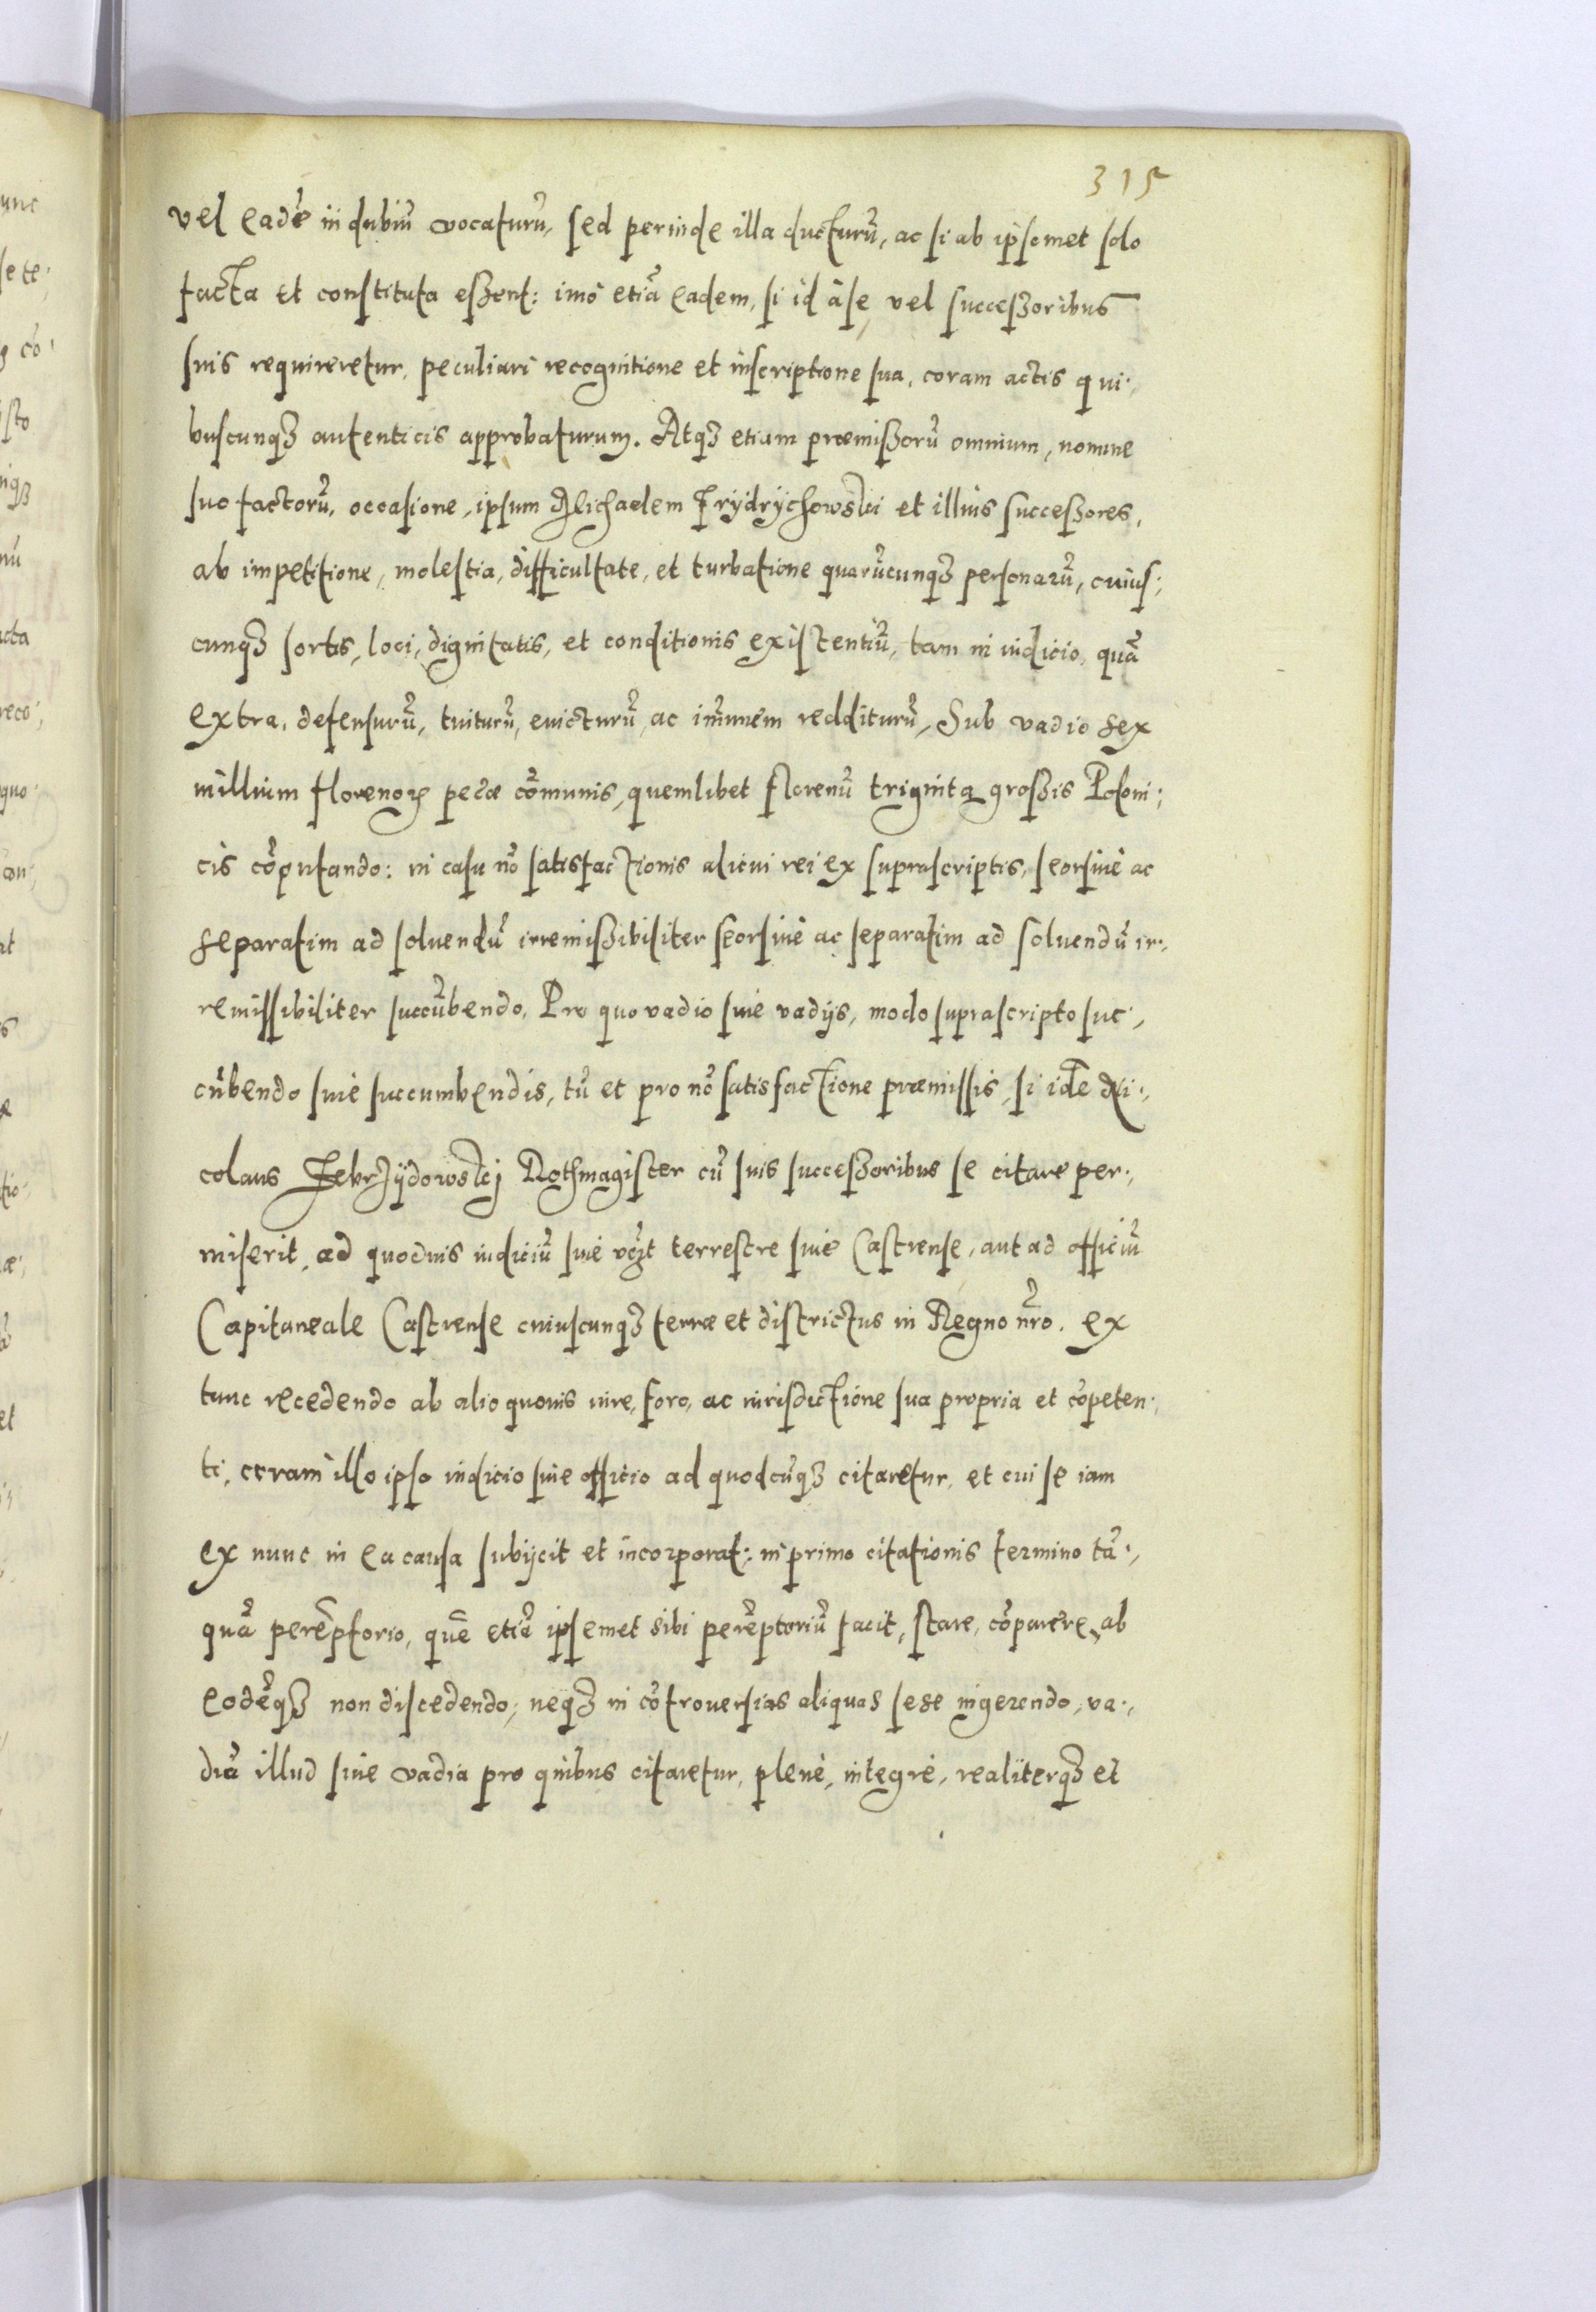 315
vel eadẽ in dubiũ vocaturũ, sed perinde illa ducturũ, ac si ab ipsomet solo
facta et constituta essent: imò etiã eadem, si id à se, vel successoribus
suis requireretur, peculiari recognitione et inscriptione sua, coram actis qui,
buscunqꝫ autenticis approbaturum. Atqꝫ etiam præmissorũ omnium, nomine
suo factorũ, occasione, ipsum Michaelem Frydrychowski et illius successores,
ab impetitione, molestia, difficultate, et turbatione quarũcunqꝫ personarũ, cuius;
cunqꝫ sortis, loci, dignitatis, et conditionis existentiũ, tam in iudicio, quã
extra, defensurũ, tuiturũ, euicturũ, ac im̃unem redditurũ, Sub vadio sex
millium florenoꝝ pecũæ cõmunis, quemlibet florenũ triginta grossis Poloni;
cis cõputando: in casu nõ satisfactionis alicui rei ex suprascriptis, seorsiuè ac
separatim ad soluendũ irremissibiliter seorsiuè ac separatim ad soluendũ ir,
remissibiliter succũbendo. Pro quo vadio siue vadijs, modo suprascripto suc,
cũbendo siuè succumbendis, tũ et pro nõ satisfactione præmissis, si idẽ Ni,
colaus Zebrzydowskj Rothmagister cũ suis successoribus se citare per;
miserit, ad quoduis iudiciũ siuè terrestre siuè Castrense, aut ad officiũ
Capitaneale Castrense cuiuscunqꝫ terræ et districtus in Regno nr̃o. ex
tunc recedendo ab alio quouis iure, foro, ac iurisdictione sua propria et cõpeten,
ti, coram illo ipso iudicio siue officio ad quodcũqꝫ citaretur, et cui se iam
ex nunc in ea causa subijcit et incorporat: in primo citationis termino tã,
quã perẽptorio, quẽ etiã ipsemet sibi perẽptoriũ facit, stare, cõparere, ab
eodẽqꝫ non discedendo, neqꝫ in cõtrouersias aliquas sese ingerendo, va,
diũ illud siue vadia pro quibus citaretur, plenè, integrè, realiterqꝫ et